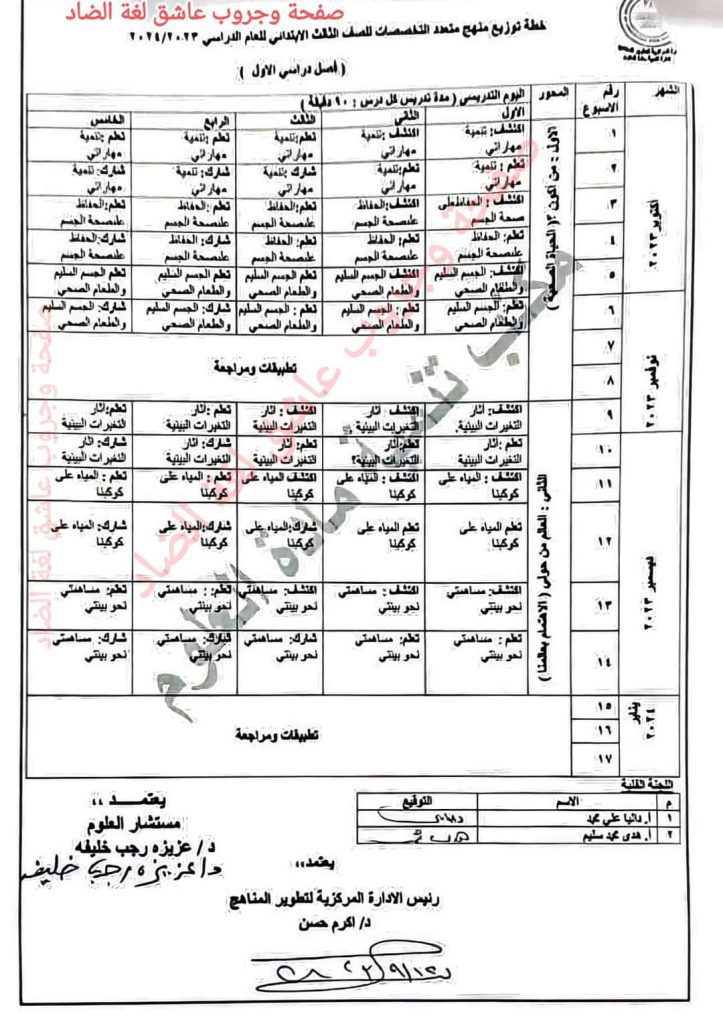 صفحة وجروب عاشق لغة الضاد
خطة توزيع منهج متعدد التخصصات للصف الثالث الابتدائي للعام الدراسي ٢٠٢٤/٢٠٢٣
( فصل دراسي الاول )
الشهر رقم الاسبوع المحور اليوم التدريسي ( مدة تدريس كل درس : ٩٠ دقيقة )
الاول الثاني الثالث الرابع الخامس
اكتوبر ٢٠٢٣
الاول : من اكون ؟ ( الحياة الصحية )
١ اكتشف: تنمية مهاراتي اكتشف: تنمية مهاراتي تعلم: تنمية مهاراتي تعلم: تنمية مهاراتي تعلم: تنمية مهاراتي
٢ تعلم: تنمية مهاراتي تعلم: تنمية مهاراتي شارك: تنمية مهاراتي شارك: تنمية مهاراتي شارك: تنمية مهاراتي
٣ اكتشف: الحفاظ على صحة الجسم اكتشف: الحفاظ على صحة الجسم تعلم: الحفاظ على صحة الجسم تعلم: الحفاظ على صحة الجسم تعلم: الحفاظ على صحة الجسم
٤ تعلم: الحفاظ على صحة الجسم تعلم: الحفاظ على صحة الجسم تعلم: الحفاظ على صحة الجسم شارك: الحفاظ على صحة الجسم شارك: الحفاظ على صحة الجسم
٥ اكتشف: الجسم السليم والطعام الصحي اكتشف الجسم السليم والطعام الصحي تعلم الجسم السليم والطعام الصحي تعلم الجسم السليم والطعام الصحي تعلم الجسم السليم والطعام الصحي
نوفمبر ٢٠٢٣
٦ تعلم: الجسم السليم والطعام الصحي تعلم: الجسم السليم والطعام الصحي تعلم : الجسم السليم والطعام الصحي شارك : الجسم السليم والطعام الصحي شارك: الجسم السليم والطعام الصحي
٧
تطبيقات ومراجعة
٨
الثاني : العالم من حولي ( الاهتمام بعالمنا )
٩ اكتشف: آثار التغيرات البيئية. اكتشف: آثار التغيرات البيئية اكتشف : آثار التغيرات البيئية تعلم :آثار التغيرات البيئية تعلم: آثار التغيرات البيئية
ديسمبر ٢٠٢٣
١٠ تعلم: آثار التغيرات البيئية تعلم: آثار التغيرات البيئية؟ تعلم: آثار التغيرات البيئية شارك: آثار التغيرات البيئية شارك: آثار التغيرات البيئية
١١ اكتشف : المياه على كوكبنا اكتشف : المياه على كوكبنا اكتشف المياه على كوكبنا تعلم : المياه على كوكبنا تعلم : المياه على كوكبنا
١٢ تعلم المياه على كوكبنا تعلم المياه على كوكبنا شارك:المياه على كوكبنا شارك:المياه على كوكبنا شارك: المياه على كوكبنا
١٣ اكتشف: مساهمتي نحو بيئتي اكتشف: مساهمتي نحو بيئتي اكتشف: مساهمتي نحو بيئتي تعلم: مساهمتي نحو بيئتي تعلم: مساهمتي نحو بيئتي
١٤ تعلم : مساهمتي نحو بيئتي تعلم: مساهمتي نحو بيئتي شارك: مساهمتي نحو بيئتي شارك: مساهمتي نحو بيئتي شارك: مساهمتي نحو بيئتي
يناير ٢٠٢٤
١٥
١٦ تطبيقات ومراجعة
١٧
صفحة وجروب عاشق لغة الضاد
مكتب تنمية مادة العلوم
صفحة وجروب عاشق لغة الضاد
اللجنة الفنية
م الاسم التوقيع
١ أ. دانيا علي محمد
٢ أ. هدى محمد سليم
يعتمد ،،
مستشار العلوم
د/ عزيزه رجب خليفه
د/عزيزه رجب خليفه
يعتمد،،
رئيس الادارة المركزية لتطوير المناهج
د/ اكرم حسن